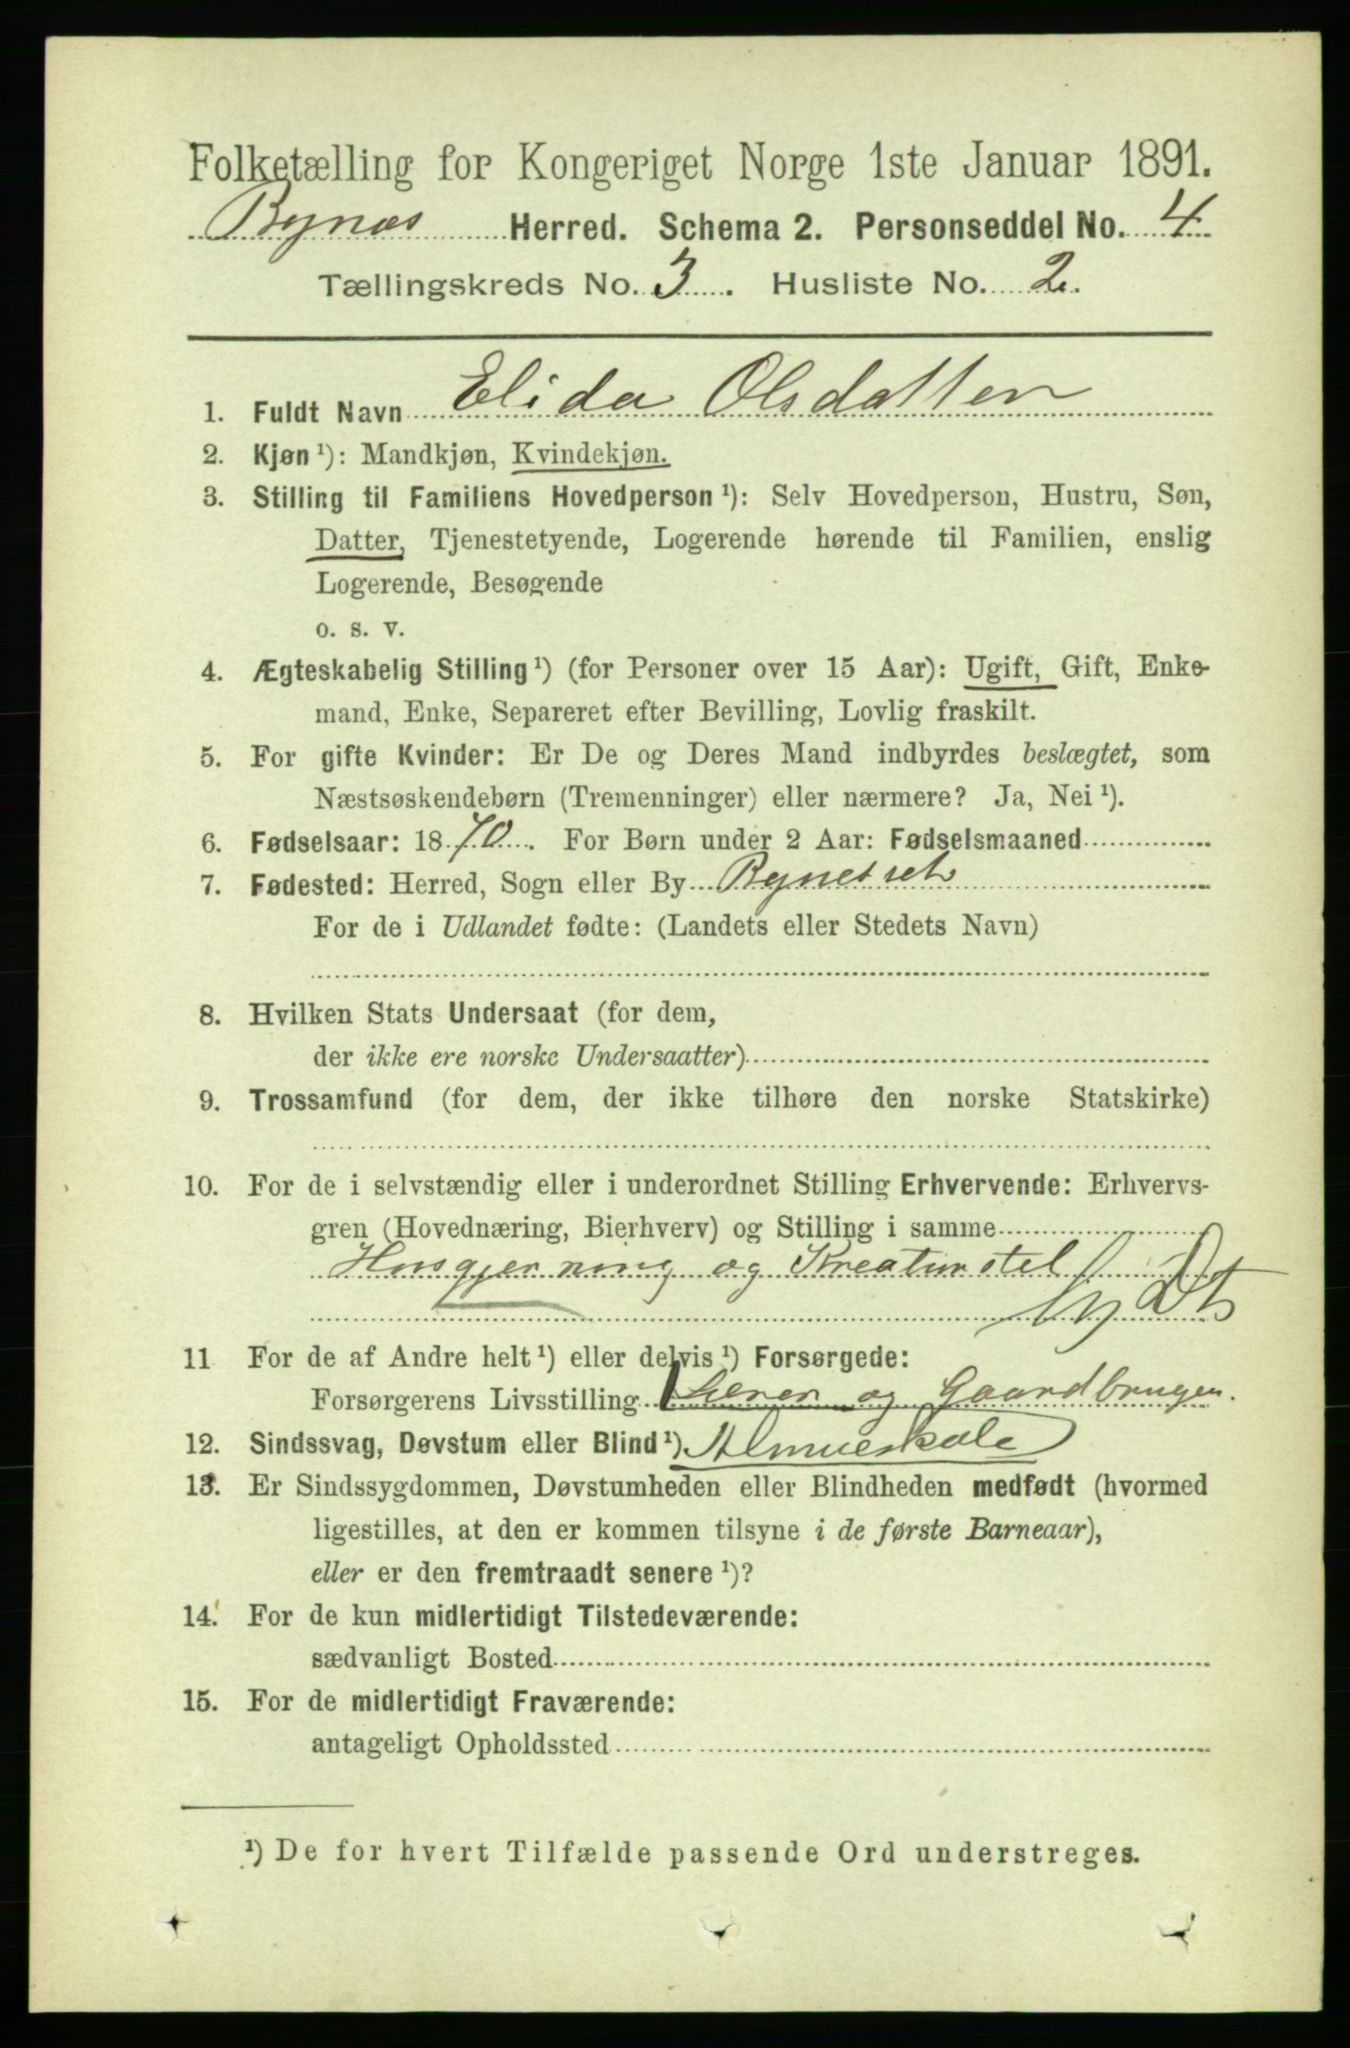 Folketælling for Kongeriget Norge 1ste Januar 1891.
Bynæs Herred. Schema 2. Personseddel No. 4
Tællingskreds No. 3. Husliste No. 2.
1. Fuldt Navn Elida Olsdatter
2. Kjøn ¹): Mandkjøn, Kvindekjøn.
3. Stilling til Familiens Hovedperson ¹): Selv Hovedperson, Hustru, Søn,
Datter, Tjenestetyende, Logerende hørende til Familien, enslig
Logerende, Besøgende
o. s. v.
4. Ægteskabelig Stilling ¹) (for Personer over 15 Aar): Ugift, Gift, Enke-
mand, Enke, Separeret efter Bevilling, Lovlig fraskilt.
5. For gifte Kvinder: Er De og Deres Mand indbyrdes beslægtet, som
Næstsøskendebørn (Tremenninger) eller nærmere? Ja, Nei ¹).
6. Fødselsaar: 1870. For Børn under 2 Aar: Fødselsmaaned
7. Fødested: Herred, Sogn eller By Bynesset
For de i Udlandet fødte: (Landets eller Stedets Navn)
8. Hvilken Stats Undersaat (for dem,
der ikke ere norske Undersaatter)
9. Trossamfund (for dem, der ikke tilhøre den norske Statskirke)
10. For de i selvstændig eller i underordnet Stilling Erhvervende: Erhvervs-
gren (Hovednæring, Bierhverv) og Stilling i samme
Husgjerning og Kreaturstel
11 For de af Andre helt ¹) eller delvis ¹) Forsørgede:
Forsørgerens Livsstilling Lærer og Gaardbruger.
12. Sindssvag, Døvstum eller Blind ¹). Almueskole
13. Er Sindssygdommen, Døvstumheden eller Blindheden medfødt (hvormed
ligestilles, at den er kommen tilsyne i de første Barneaar),
eller er den fremtraadt senere ¹)?
14. For de kun midlertidigt Tilstedeværende:
sædvanligt Bosted
15. For de midlertidigt Fraværende:
antageligt Opholdssted
¹) De for hvert Tilfælde passende Ord understreges.